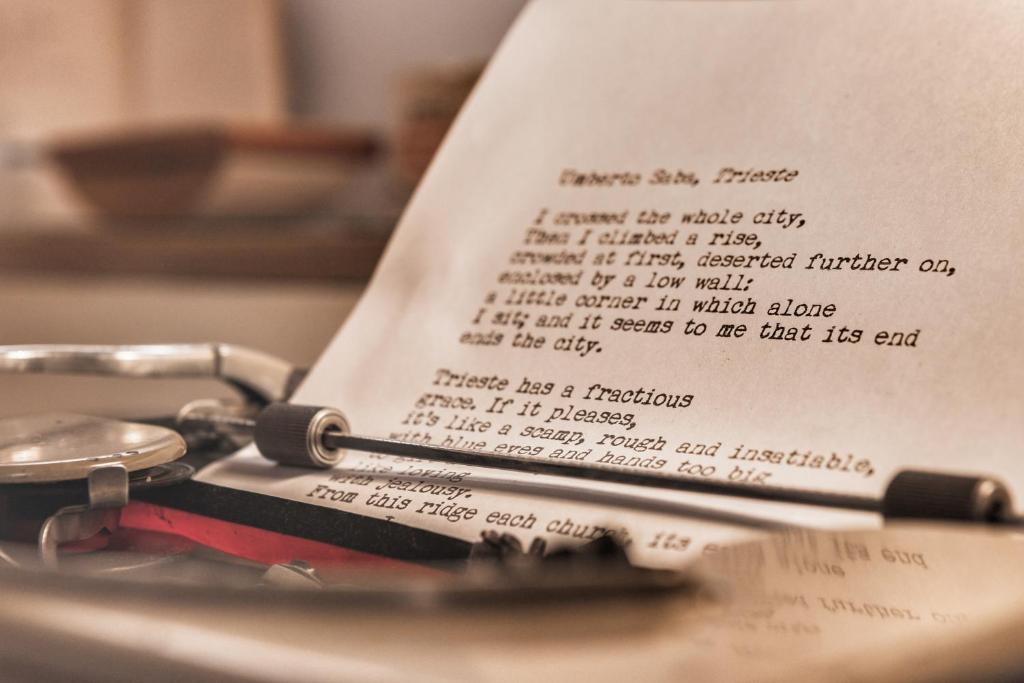 Umberto Saba, Trieste
I crossed the whole city,
Then I climbed a rise,
crowded at first, deserted further on,
enclosed by a low wall:
a little corner in which alone
I sit; and it seems to me that its end
ends the city.
Trieste has a fractious
grace. If it pleases,
it's like a scamp, rough and insatiable,
with blue eyes and hands too big
like loving
with jealousy.
From this ridge each church, its
its end
further on